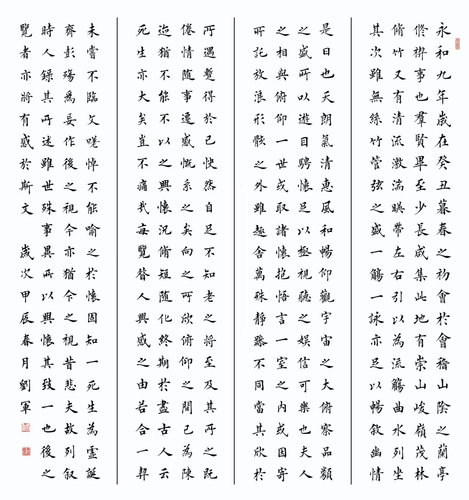 永和九年歲在癸丑暮春之初會於會稽山陰之蘭亭
脩禊事也群賢畢至少長咸集此地有崇山峻嶺茂林
脩竹又有清流激湍暎帶左右引以為流觴曲水列坐
其次雖無絲竹管弦之盛一觴一詠亦足以暢敘幽情
是日也天朗氣清惠風和暢仰觀宇宙之大俯察品類
之盛所以遊目騁懷足以極視聽之娛信可樂也夫人
之相與俯仰一世或取諸懷抱悟言一室之內或因寄
所託放浪形骸之外雖趣舍萬殊靜躁不同當其欣於
所遇蹔得於己怏然自足不知老之將至及其所之既
倦情隨事遷感慨係之矣向之所欣俯仰之間已為陳
迹猶不能不以之興懷況脩短隨化終期於盡古人云
死生亦大矣豈不痛哉每覽昔人興感之由若合一契
未嘗不臨文嗟悼不能喻之於懷固知一死生為虛誕
齊彭殤為妄作後之視今亦猶今之視昔悲夫故列敘
時人錄其所述雖世殊事異所以興懷其致一也後之
覽者亦將有感於斯文 歲次甲辰春月劉軍